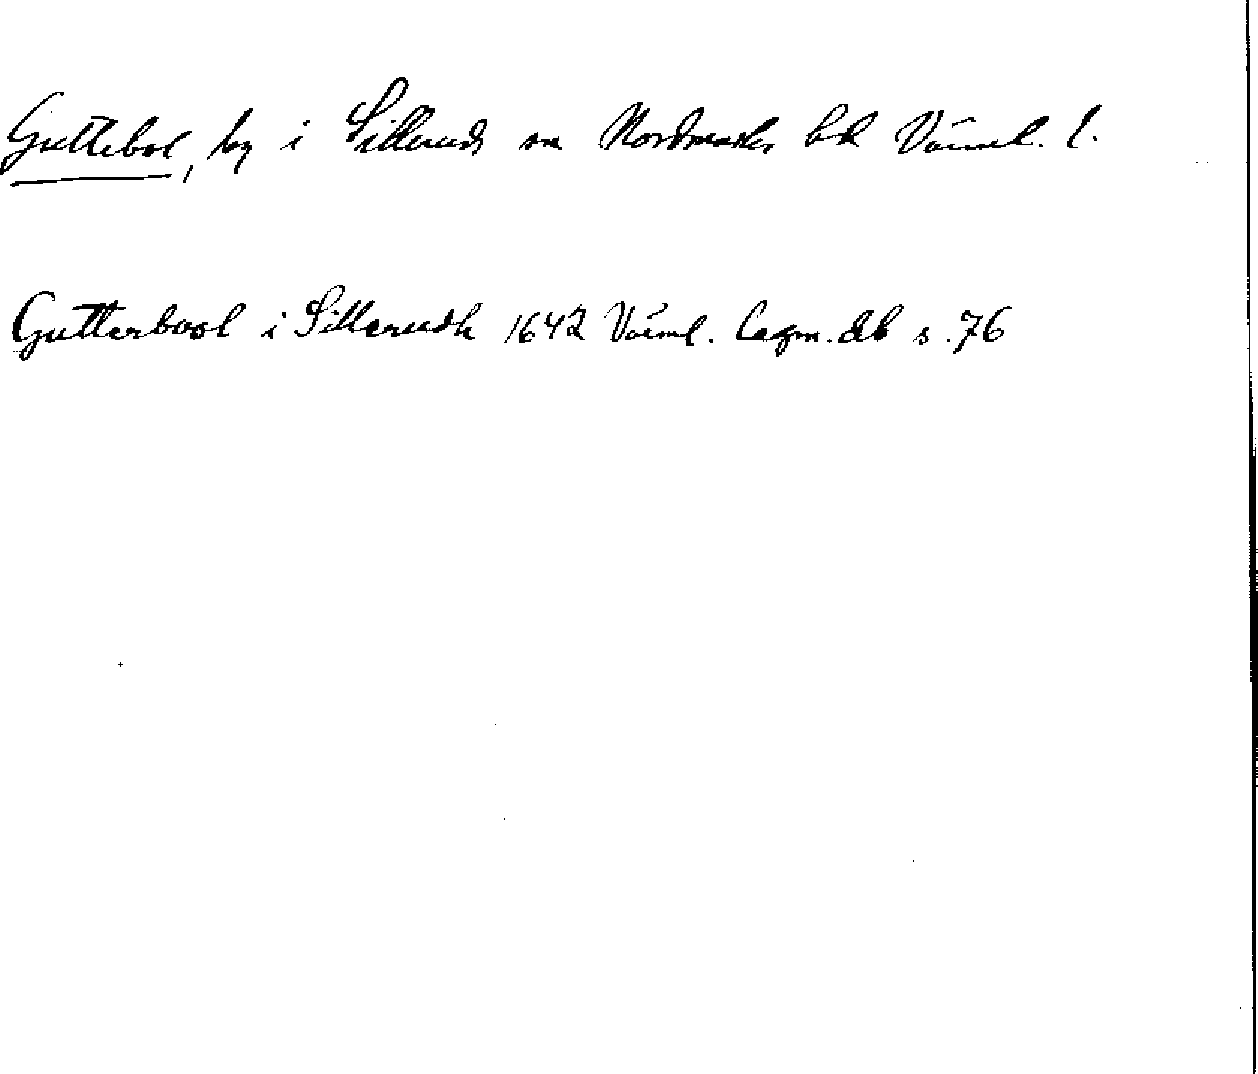 Guttebol, by i Silleruds sn Nordmarks hd Värml. l.
Gutterbool i Sillerudh 1642 Värml. lagm. db s. 76